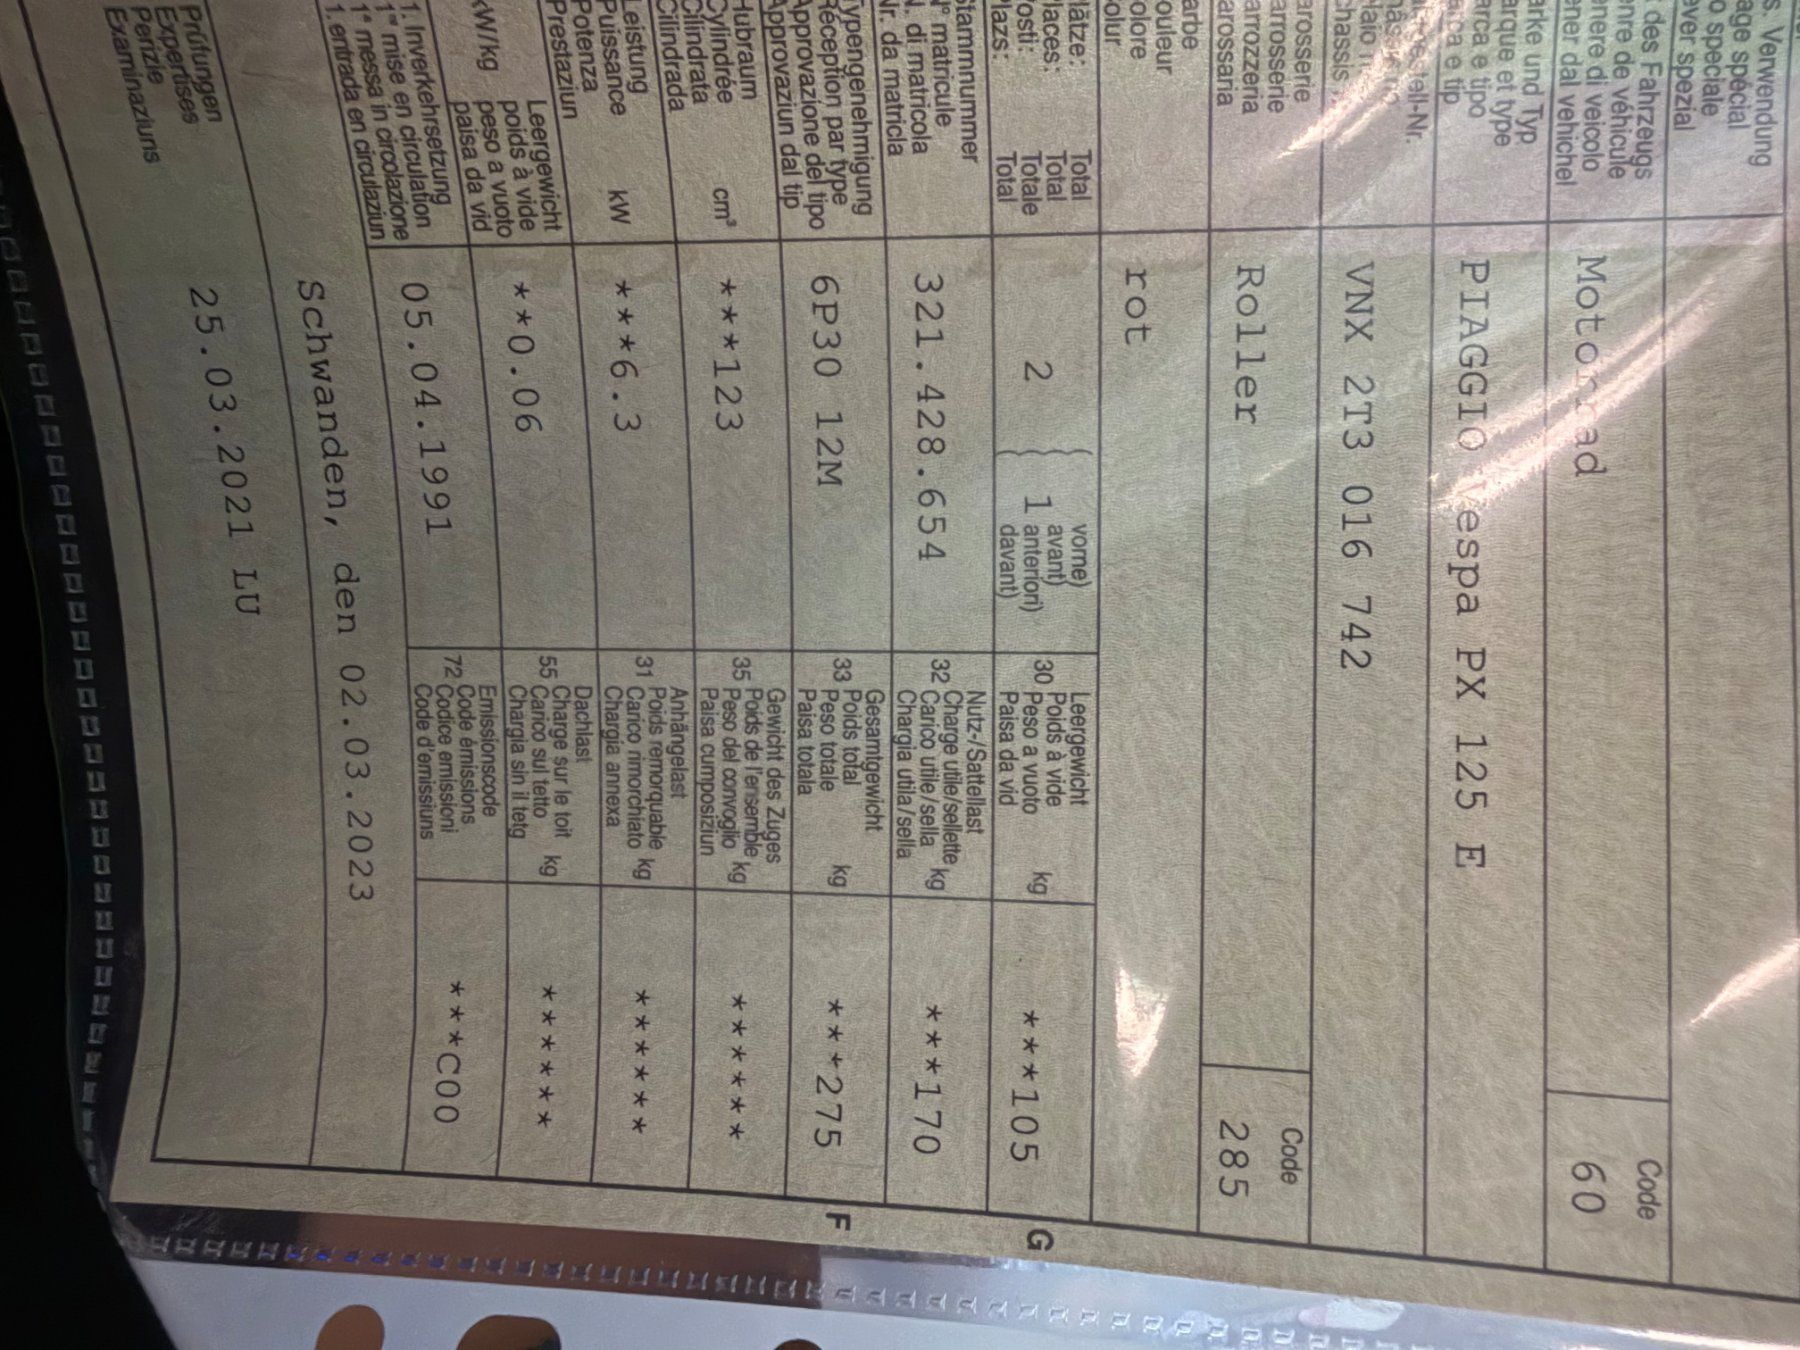 s. Verwendung
age spécial
o speciale
ever spezial
des Fahrzeugs
enre de véhicule
enere di veicolo
ener dal vehichel
Motorrad
Code
60
arke und Typ
arque et type
arca e tipo
rca e tip
PIAGGIO Vespa PX 125 E
stell-Nr.
chassis
VNX 2T3 016 742
arosserie
arrosserie
arrozzeria
arossaria
Roller
Code
285
arbe
ouleur
olore
olur
rot
lätze: Total
laces: Total
osti: Totale
lazs: Total
2
vorne)
avant)
1 anteriori)
davant)
Leergewicht
30 Poids à vide
Peso a vuoto kg
Paisa da vid
***105
G
Stammnummer
N° matricule
N. di matricola
Nr. da matricla
321.428.654
Nutz-/Sattellast
32 Charge utile/sellette
Carico utile/sella kg
Chargia utila/sella
***170
Typengenehmigung
Réception par type
Approvazione del tipo
Approvaziun dal tip
6P30 12M
Gesamtgewicht
33 Poids total
Peso totale kg
Paisa totala
***275
F
Hubraum
Cylindrée
Cilindrata cm³
Cilindrada
***123
Gewicht des Zuges
35 Poids de l'ensemble
Peso del convoglio kg
Paisa cumposiziun
******
Leistung
Puissance kW
Potenza
Prestaziun
***6.3
Anhängelast
31 Poids remorquable
Carico rimorchiato kg
Chargia annexa
******
Leergewicht
poids à vide
kW/kg peso a vuoto
paisa da vid
**0.06
Dachlast
55 Charge sur le toit
Carico sul tetto kg
Chargia sin il tetg
******
1. Inverkehrsetzung
1re mise en circulation
1a messa in circolazione
1. entrada en circulaziun
05.04.1991
Emissionscode
72 Code émissions
Codice emissioni
Code d'emissiuns
***C00
Schwanden, den 02.03.2023
Prüfungen
Expertises
Perizie
Examinaziuns
25.03.2021 LU